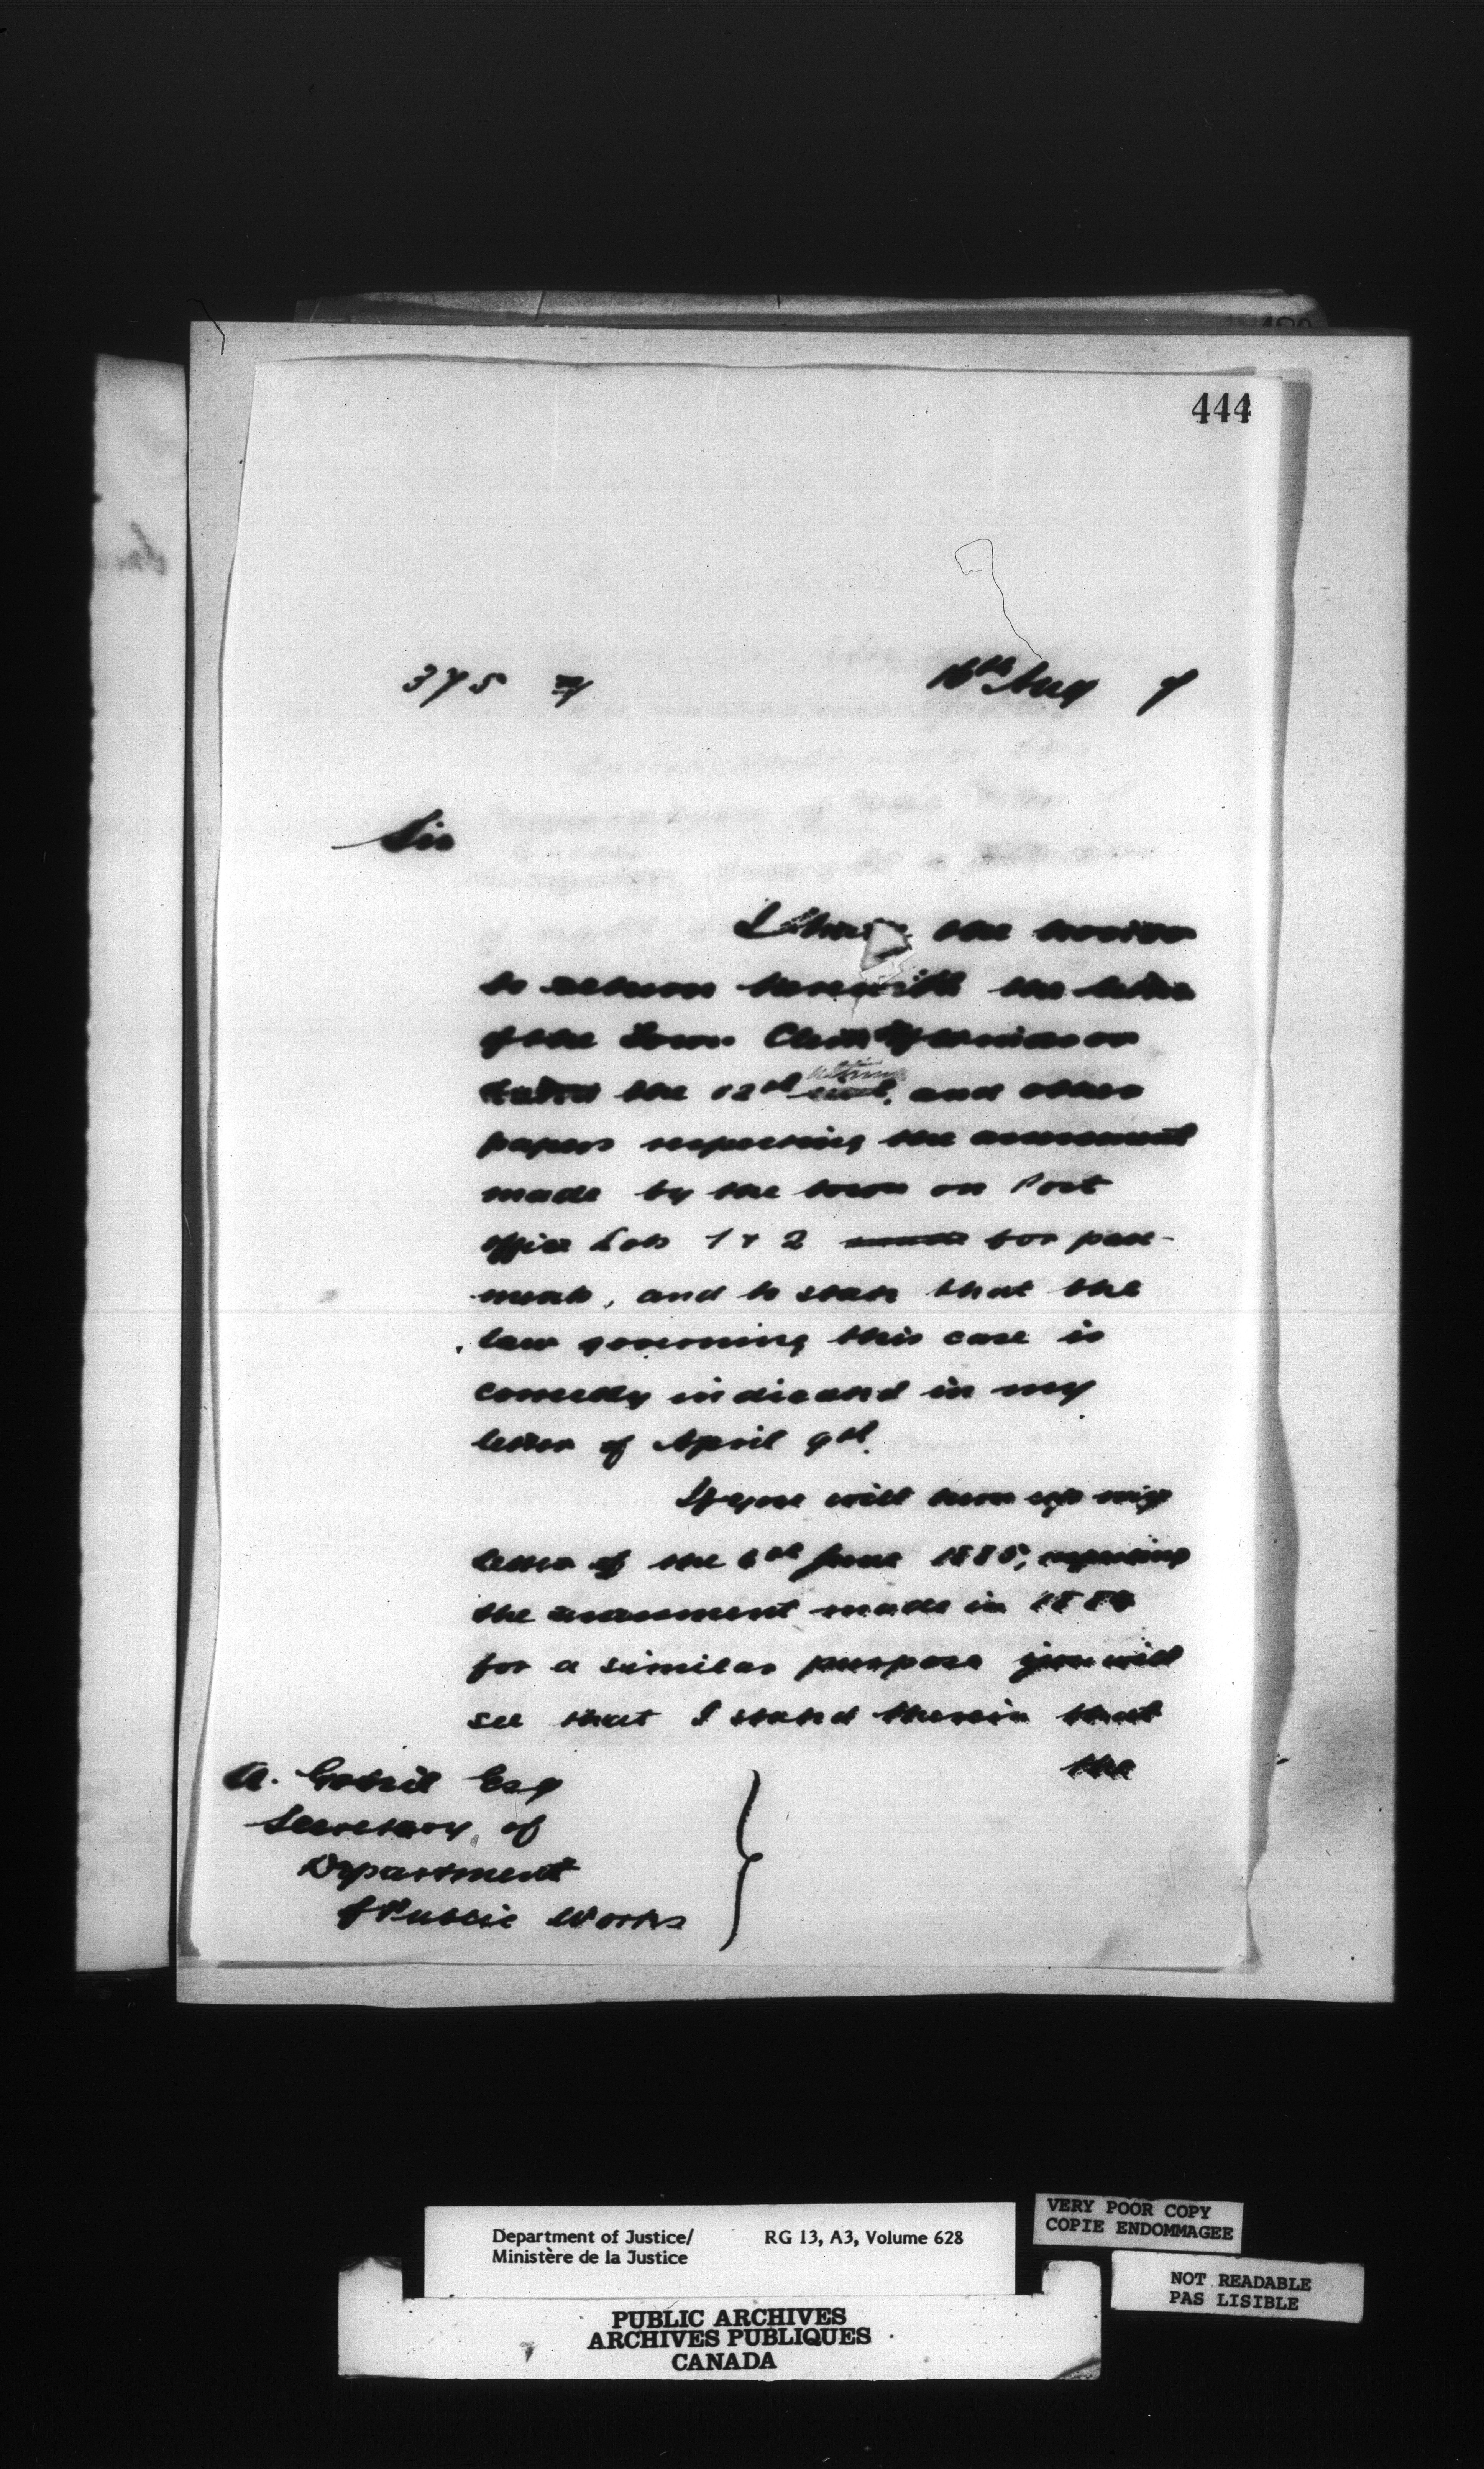 444
375 7
16th Aug 7
Sir
I have the honor
to return herewith the letter
of the Town Clerk of
dated the 12th ultimo and other
papers respecting the assessment
made by the town on Post
office Lots 1 & 2 made for pave-
ments, and to state that the
law governing this case is
correctly indicated in my
letter of April 9th.
If you will turn up my
letter of the 6th June 1885, respecting
the assessment made in 1884
for a similar purpose you will
see that I stated therein that
the
A. Gobeil Esq
Secretary of
Department
of Public Works
Department of Justice/ RG 13, A3, Volume 628
Ministère de la Justice
VERY POOR COPY
COPIE ENDOMMAGEE
NOT READABLE
PAS LISIBLE
PUBLIC ARCHIVES
ARCHIVES PUBLIQUES
CANADA